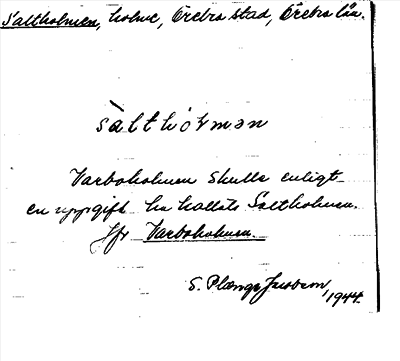 Saltholmen, holme, Örebro stad, Örebro län.
sàlthòḷmən
Varboholmen skulle enligt
en uppgift ha kallats Saltholmen.
Jfr Varboholmen.
S. Plænge Jacobson, 1944.